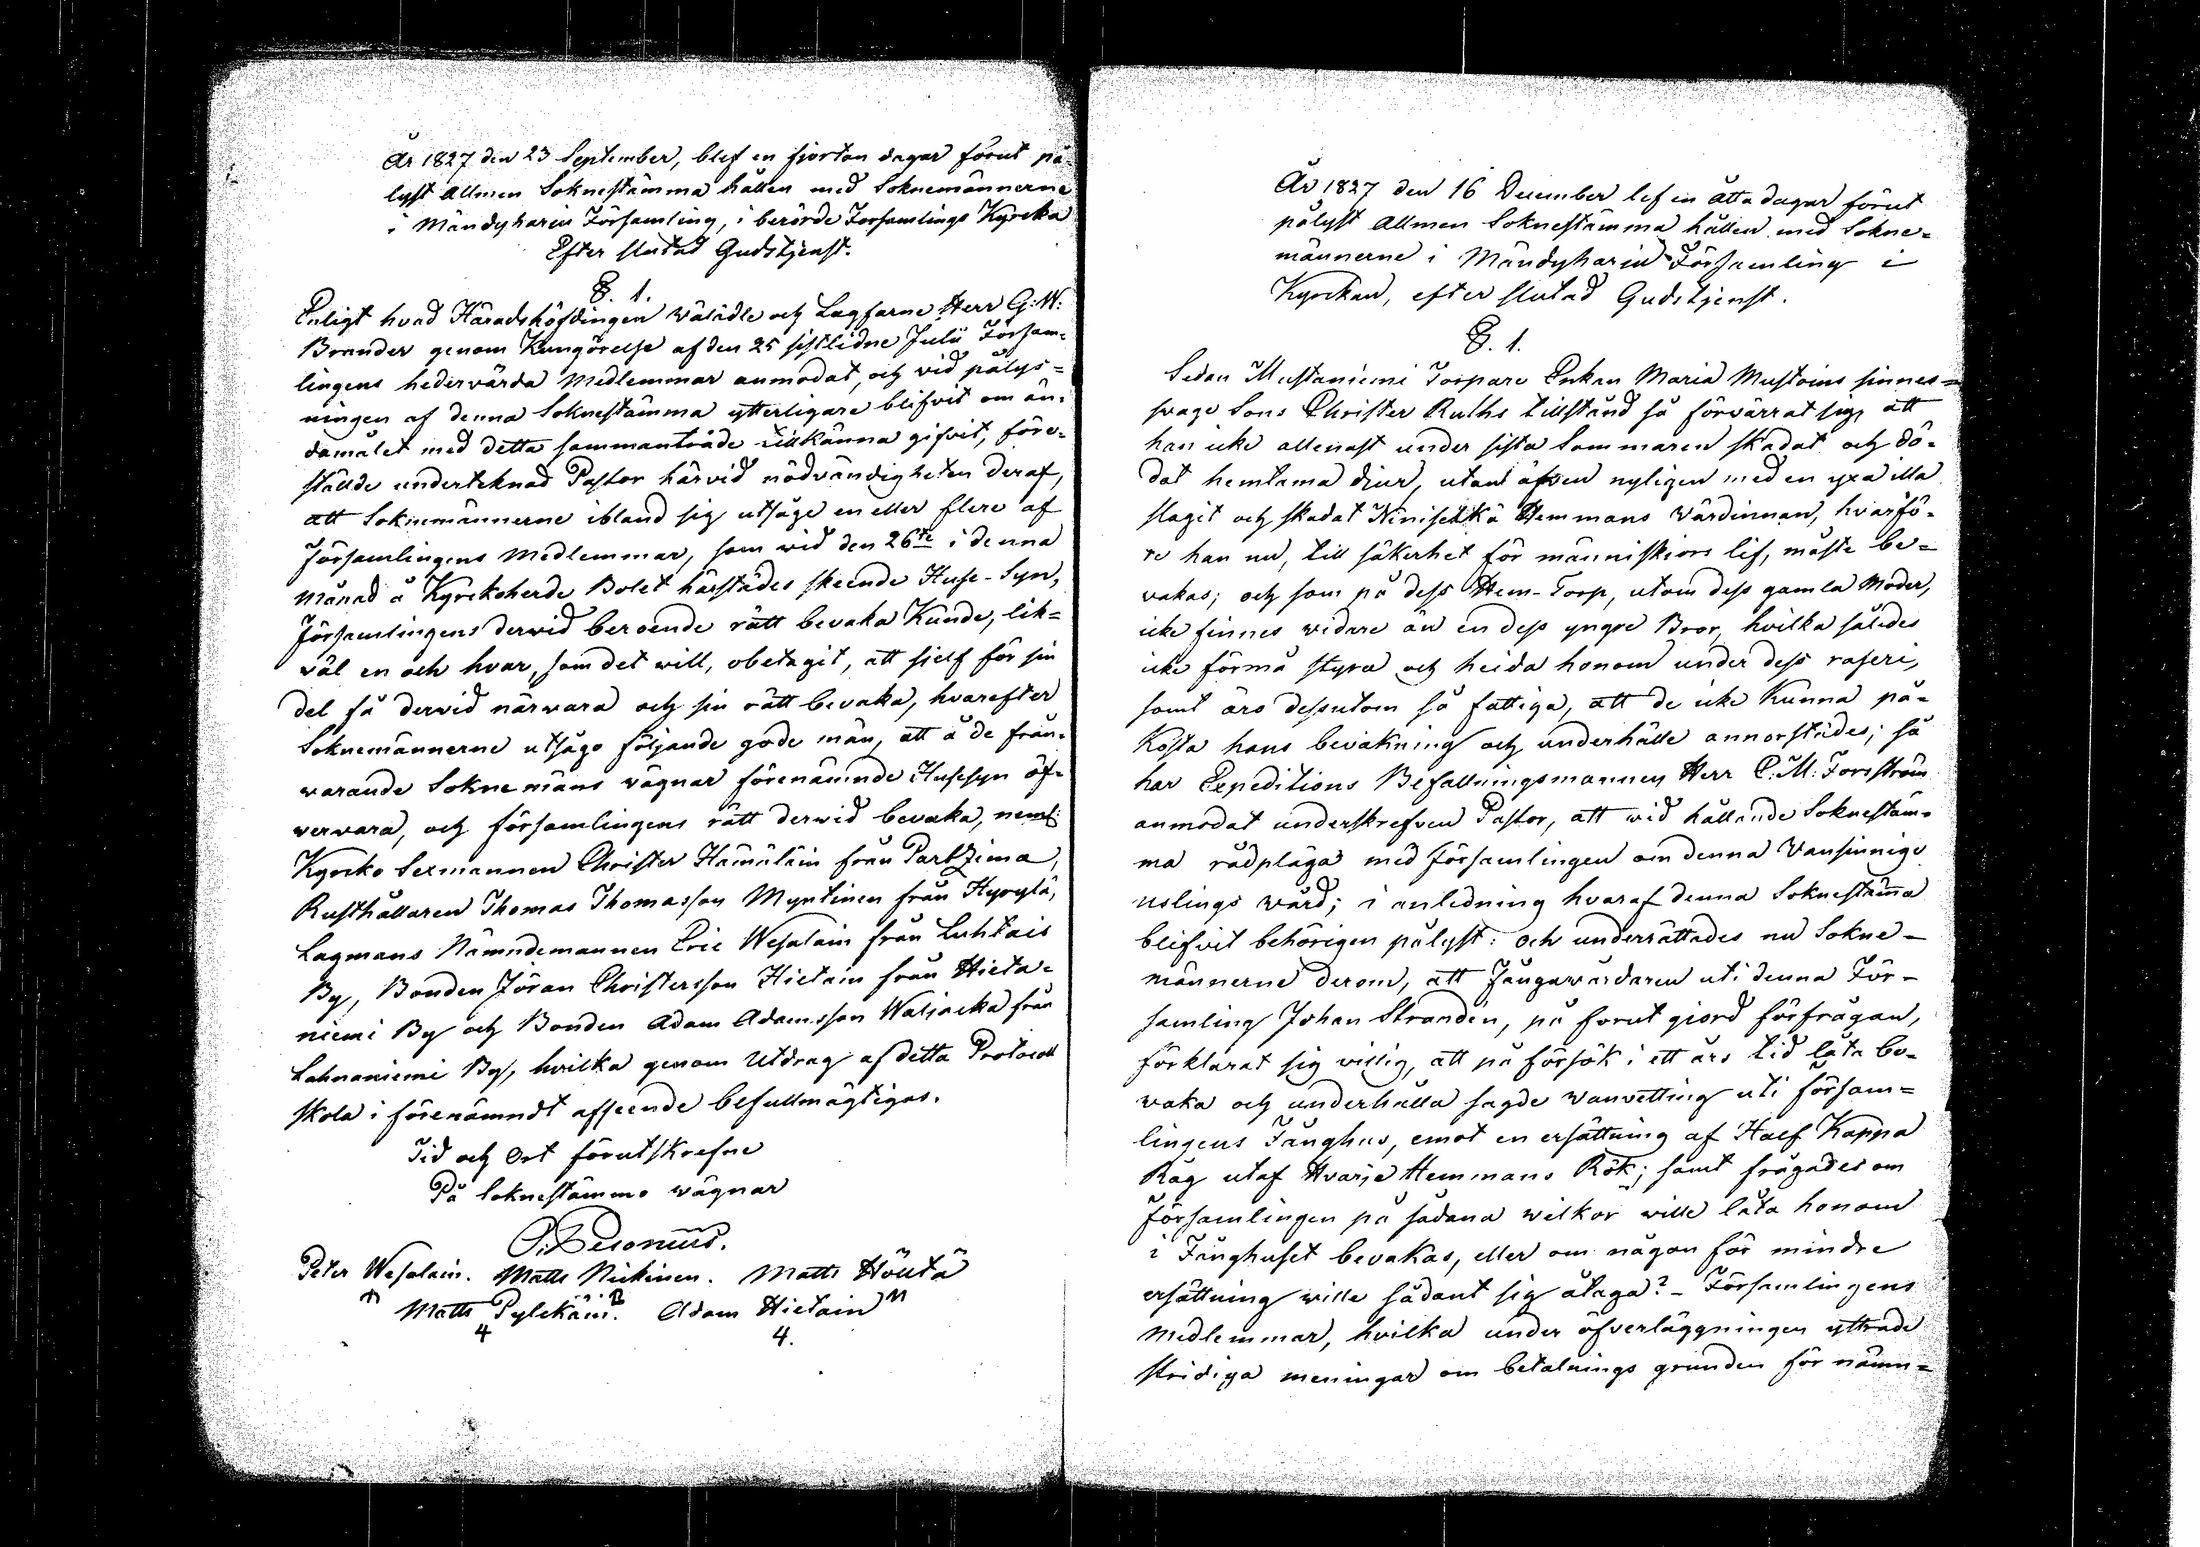 År 1827 den 23 September, blef en fjorton dagar förut på-
lyst Allmen Soknestämma hållen med Soknemännerne
i Mändyharju Församling, i berörde Forsamlings Kyrcka
Efter slutad Gudstjenst.
§. 1.
Enligt hvad Häradshöfdingen wälädle och Lagfarne Herr G: W:
Brander genom Kungörelse af den 25 sistlidne Julii Försam-
lingens hedervärda Medlemmar anmodat, och vid pålys-
ningen af denna Soknestämma ytterligare blifvit om än-
damålet med detta sammanträde tillkänna gifvit, före-
stälde underteknad Pastor härvid nödvändigheten deraf,
att Soknemännerne ibland sig utsåge en eller flere af
Församlingens Medlemmar, som wid den 26te i denna
månad å Kyrckoherde Bolet härstädes skeende Huse-Syn,
Församlingens derwid beroende rätt bevaka Kunde, lik-
väl en och hvar, som det will, obetagit, att sjelf för sin
del få derwid närwara och sin rätt bevaka, hvarefter
Soknemännerne utsågo följande gode män, att å de från-
warande Sokne mäns vägnar förenämnde Husesyn öf-
werwara, och församlingens rätt derwid bevaka, neml:
Kyrcko Sexmannen Christer Hämäläin från Partzima,
Rusthållaren Thomas Thomasson Myntinen från Hyrylä,
Lagmans Nämndemannen Eric Wesalain från Luhtais
By, Bonden Jöran Christersson Hietain från Hieta-
niemi By och Bonden Adam Adamsson Waljacka från
Lahnaniemi By, hvilka genom Utdrag af detta Protocoll
skola i förenämndt afseende befullmägtigas.
Tid och Ort förutskrefne
På Soknestämmo wägnar
Peter Wesalain. Matts Nickinen. Matts Höltä
Matts Pylckäin. Adam Hietain
4 4.
År 1827 den 16 December blef en åtta dagar förut
pålyst Allmen Soknestämma hållen med Sokne-
männerne i Mändyharju Församling i
Kyrckan, efter slutad Gudstjenst.
§. 1.
Sedan Mustaniemi Torpare Enkan Maria Mustoins sinnes-
swage Sons Christer Ruths tillstånd så förvärrat sig, att
han icke allenast under sista Sommaren skadat och dö-
dat hemtama djur, utan äfven nyligen med en yxa illa
slagit och skadat Hemmans Wärdinnan, hvarfö-
re han nu, till säkerhet för människiors lif, måste be-
vakas; och som på dess Hem-Torp, utom dess gamla Moder,
icke finnes widare än en dess yngre Bror, hvilka således
icke förmå styra och heida honom under dess raseri,
samt äro dessutom så fattiga, att de icke Kunna på-
kosta hans bevakning och underhålle annorstädes; så
har Expeditions Befallningsmannen Herr C. M. Forsström
anmodat underskrefven Pastor, att wid hållande Soknestäm-
ma rådpläga med församlingen om denna Vansinnige
uslings wård; i anledning hvaraf denna Soknestämma
blifvit behörigen pålyst: och underrättades nu Sokne-
männerne derom, att Fångawårdaren uti denna För-
samling Johan Strandèn, på forut giord förfrågan,
förklarat sig villig, att på försök i ett års tid låta be-
waka och underhålla sagde wanvetting uti försam-
lingens Fånghus, emot en ersättning af Half Kappa
Råg utaf Hvarje Hemmans Rök; samt frågades om
Församlingen på sådana wilkor wille låta honom
i Fånghuset bevakas, eller om någon för mindre
ersättning wille sådant sig åtaga? - Församlingens
Medlemmar, hvilka under öfverläggningen yttrade
stridiga meningar om betalnings grunden för nämn-